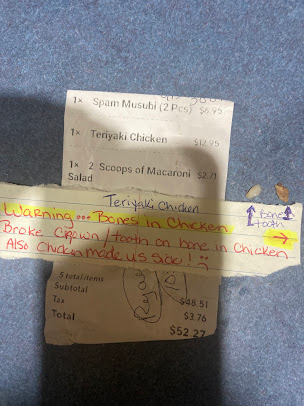 1× Spam Musubi (2 Pcs) $6.95
1× Teriyaki Chicken $12.95
1× 2 Scoops of Macaroni $2.71
Salad
Teriyaki Chicken
Warning... Bones In Chicken
Broke Crown/tooth on bone in Chicken
Also Chicken made us sick!
Bone
tooth
5 total items
Subtotal $48.51
Tax $3.76
Total $52.27